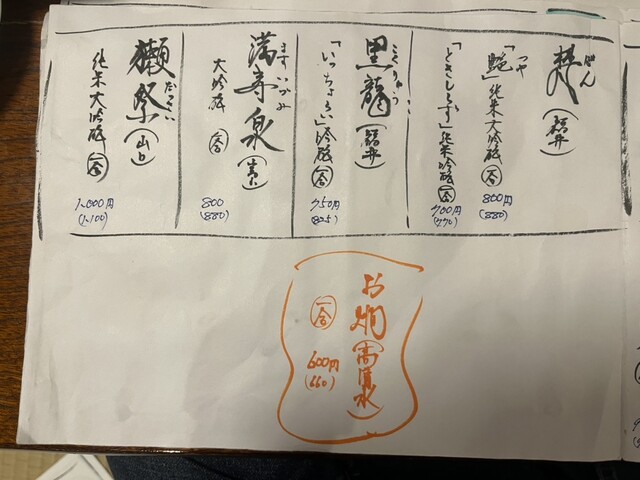 梵
ぼん
(福井)
「艶」純米大吟醸 一合
800円
(880)
「ときしらず」純米吟醸 一合
700円
(770)
黒龍
こくりゅう
(福井)
「いっちょらい」吟醸 一合
750円
(825)
満寿泉
ますいづみ
(富山)
大吟醸 一合
800
(880)
獺祭
だっさい
(山口)
純米大吟醸 一合
1,000円
(1,100)
お燗
(高清水)
一合
600円
(660)